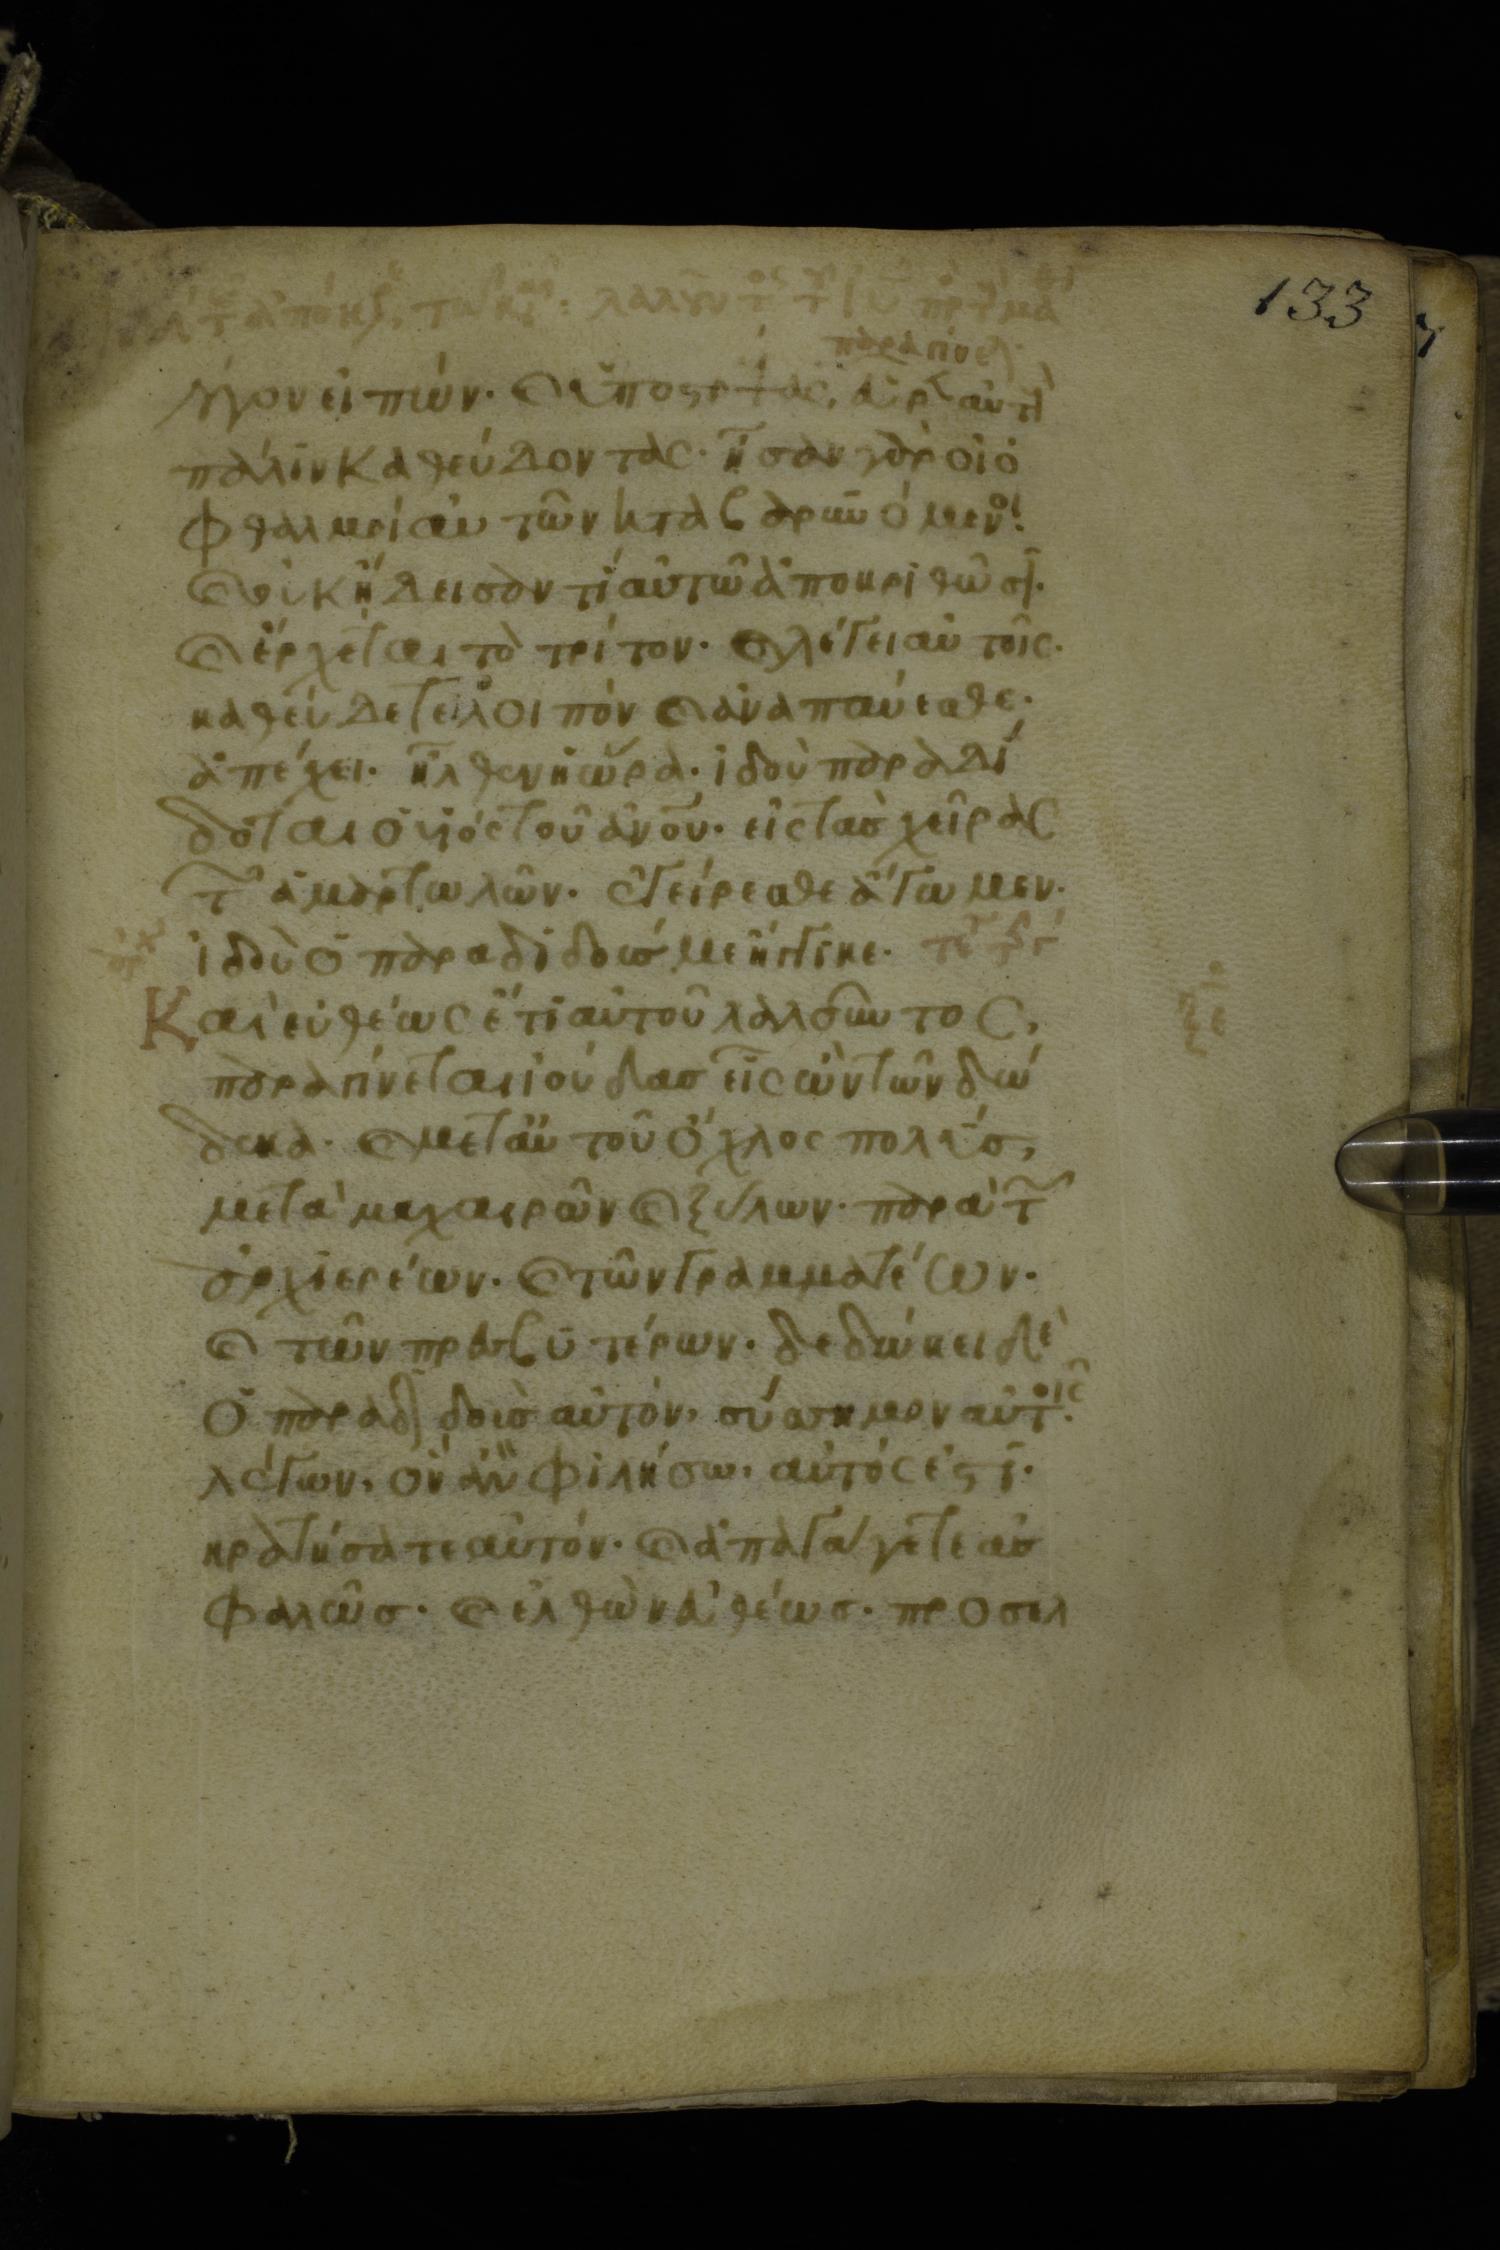 133
λόγον εἰπών. καὶ ὑποστρέψας, εὗρεν αὐτοὺς
πάλιν καθεύδοντας. ἦσαν γὰρ οἱ ὀ
φθαλμοὶ αὐτῶν καταβαρυνόμενοι.
καὶ οὐκ ᾔδεισαν τί αὐτῶ ἀποκριθῶσι.
καὶ ἔρχεται τὸ τρίτον. καὶ λέγει αὐτοῖς.
καθεύδετε λοιπὸν καὶ ἀναπαύεσθε.
ἀπέχει. ἦλθεν ἡ ὥρα. ἰδοὺ παραδί
δοται ὁ υἱὸς τοῦ ἀνου. εἰς τὰς χεῖρας
τῶν ἁμαρτωλῶν. ἐγείρεσθε ἄγωμεν.
ἰδοὺ ὁ παραδιδούς με ἤγγικε.
Καὶ εὐθέως ἔτι αὐτοῦ λαλοῦντος,
παραγίνεται ἰούδας εἷς ὢν τῶν δώ
δεκα. καὶ μετ αὐτοῦ ὄχλος πολύς,
μετὰ μαχαιρῶν καὶ ξύλων. παρὰ τῶν
ἀρχιερέων. καὶ τῶν γραμματέων.
καὶ τῶν πρεσβυτέρων. δεδώκει δὲ
ὁ παραδιδοὺς αὐτὸν, σύσσημον αὐτοῖς.
λέγων, ὃν ἂν φιλήσω, αὐτός ἐστι.
κρατήσατε αὐτόν. καὶ ἀπαγάγετε ἀσ
φαλῶς. καὶ ἐλθὼν εὐθέως. προσελ